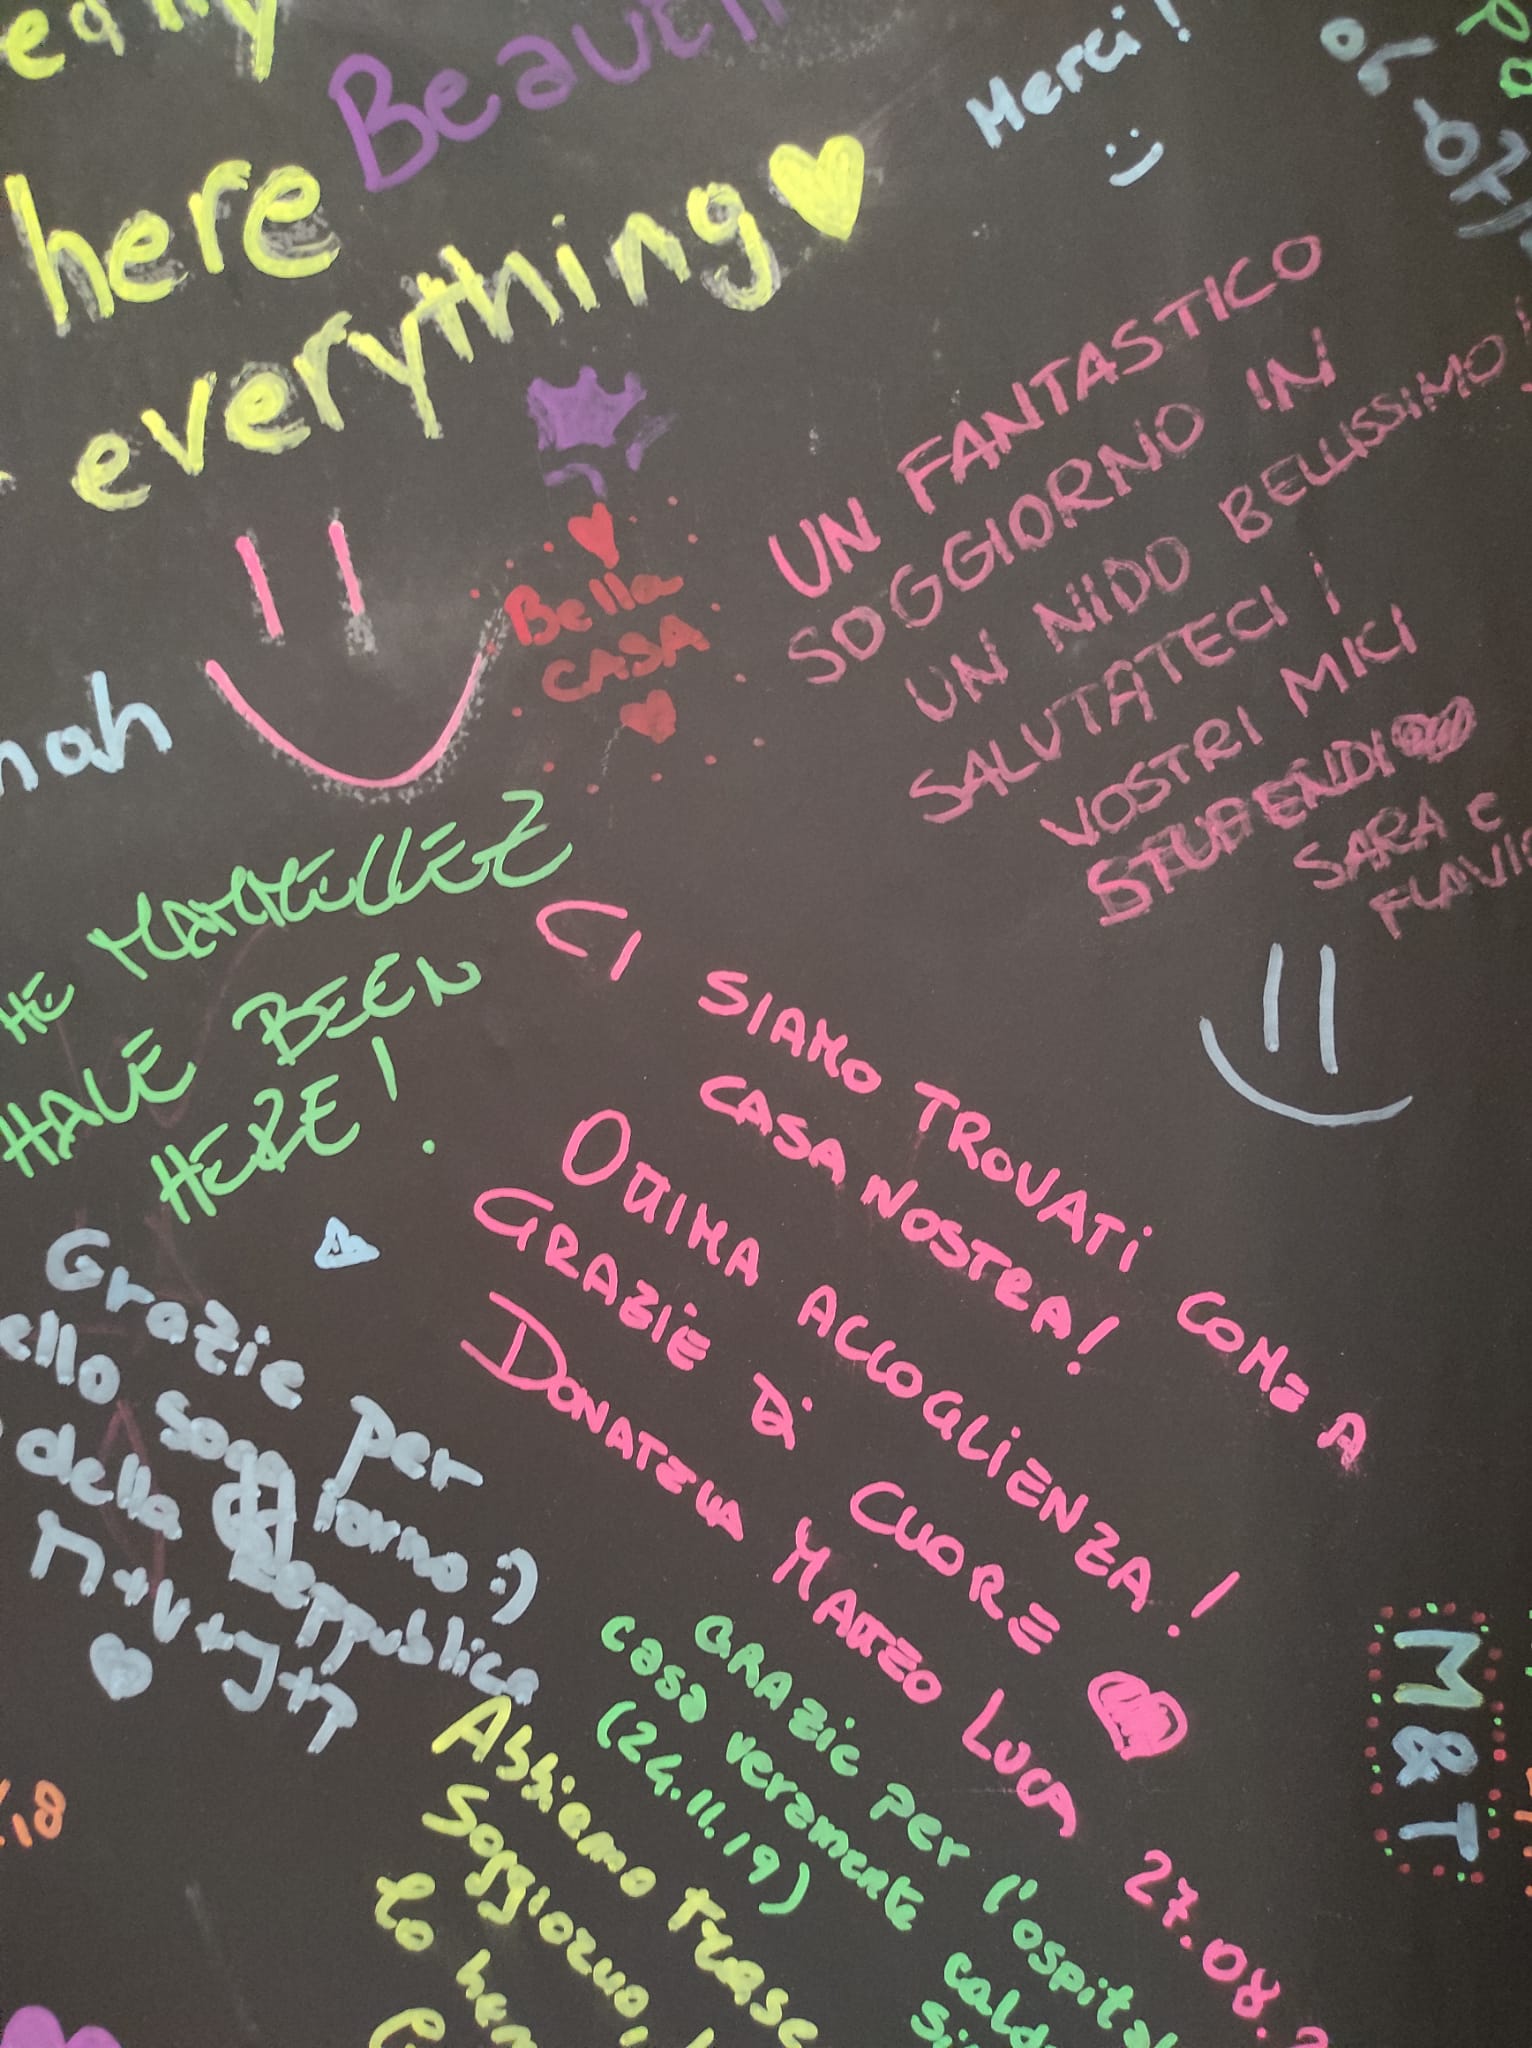 here
everything
Merci!
:)
UN FANTASTICO
SOGGIORNO IN
UN NIDO BELLISSIMO!
SALUTATECI I
VOSTRI MICI
STUPENDI
SARA E
Bella
CASA
HAVE BEEN
HERE!
CI SIAMO TROVATI COME A
CASA NOSTRA!
OTTIMA ACCOGLIENZA!
GRAZIE DI CUORE
DONATELLA MATTEO LUCA 27.08.
Grazie per
soggiorno :)
della Repubblica
GRAZie per l'ospital
casa veramente calda
(24.11.19)
Abbiamo trasc
Soggiorno,
lo
M&T